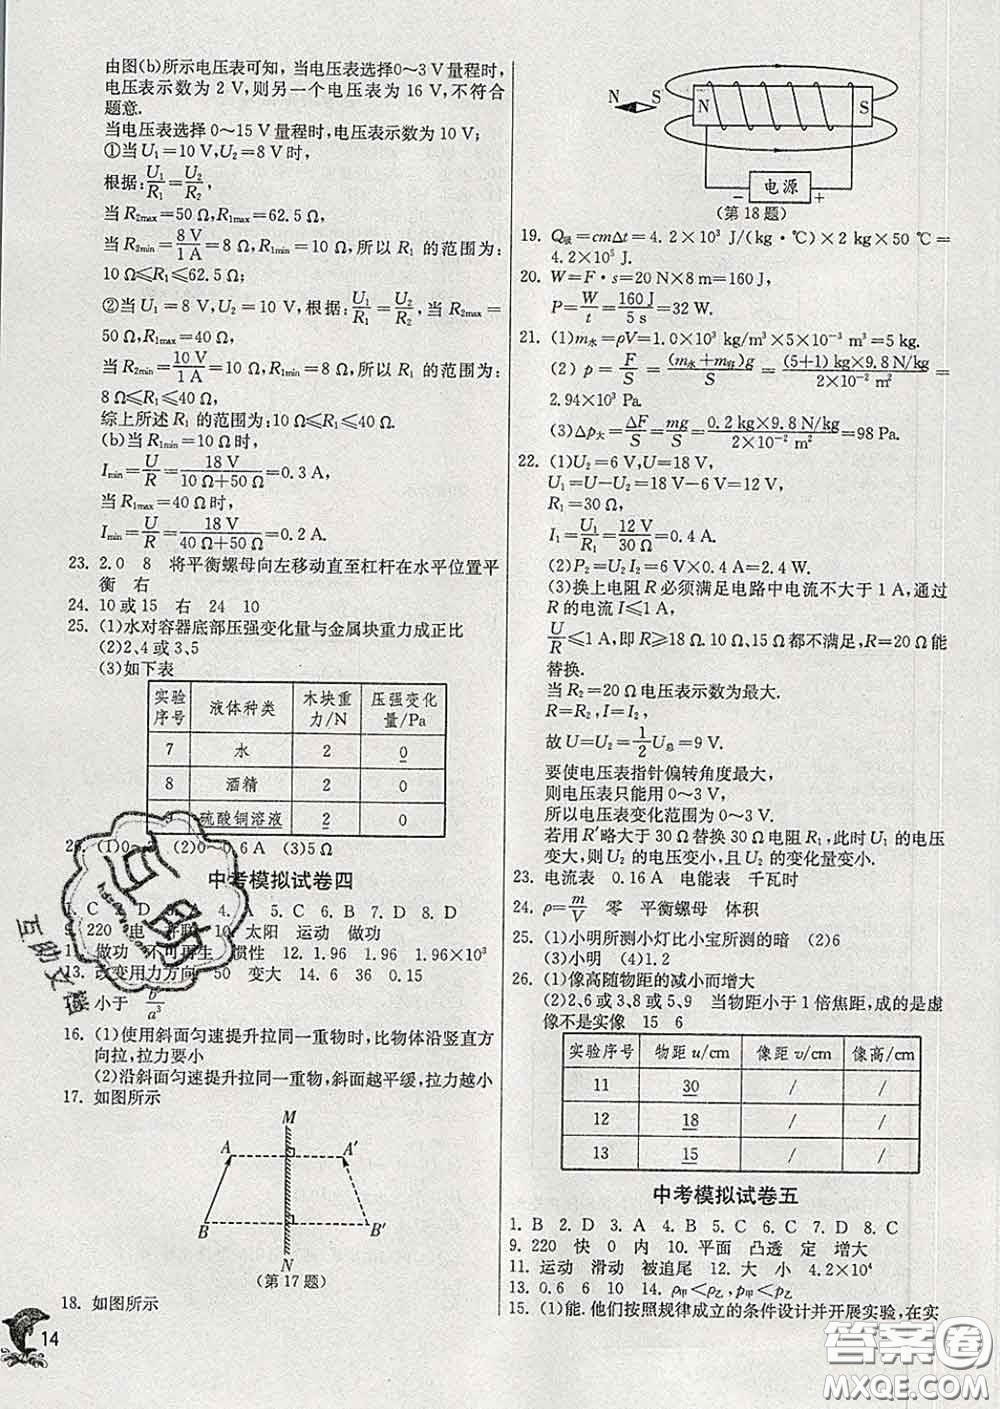 由图(b)所示电压表可知,当电压表选择0～3 V量程时,
电压表示数为 2 V,则另一个电压表为 16 V,不符合
题意.
当电压表选择 0～15 V量程时,电压表示数为 10 V;
①当 U₁=10 V,U₂=8 V时,
根据:U₁/R₁=U₂/R₂,
当 R₂max=50 Ω,R₁max=62.5 Ω;
当 R₂min=8 V/1 A=8 Ω,R₁min=10 Ω,所以 R₁ 的范围为:
10 Ω≤R₁≤62.5 Ω;
②当 U₁=8 V,U₂=10 V,根据:U₁/R₁=U₂/R₂,当 R₂max=
50 Ω,R₁max=40 Ω;
当 R₂min=10 V/1 A=10 Ω,R₁min=8 Ω;所以 R₁ 的范围为:
8 Ω≤R₁≤40 Ω.
综上所述 R₁ 的范围为:10 Ω≤R₁≤40 Ω.
(b)当 R₁min=10 Ω时,
Imin=U/R=18 V/(10 Ω+50 Ω)=0.3 A,
当 R₁max=40 Ω时,
Imin=U/R=18 V/(40 Ω+50 Ω)=0.2 A.
23. 2.0 8 将平衡螺母向左移动直至杠杆在水平位置平
衡 右
24. 10或15 右 24 10
25. (1)水对容器底部压强变化量与金属块重力成正比
(2)2、4或3、5
(3)如下表
实验序号 液体种类 木块重力/N 压强变化量/Pa
7 水 2 0
8 酒精 2 0
硫酸铜溶液 2 0
(1)0 (2)0～0.6 A (3)5 Ω
中考模拟试卷四
C D 4. A 5. C 6. B 7. D 8. D
9. 220 电 并联 10. 太阳 运动 做功
11. 做功 不可再生 惯性 12. 1.96 1.96 1.96×10³
13. 改变用力方向 50 变大 14. 6 36 0.15
小于 b/a³
16. (1)使用斜面匀速提升拉同一重物时,比物体沿竖直方
向拉,拉力要小
(2)沿斜面匀速提升拉同一重物,斜面越平缓,拉力越小
17. 如图所示
M
A A′
B B′
N
(第17题)
18. 如图所示
14
N S N S
− 电源 +
(第18题)
19. Q吸=cmΔt=4.2×10³ J/(kg·℃)×2 kg×50 ℃=
4.2×10⁵ J.
20. W=F·s=20 N×8 m=160 J,
P=W/t=160 J/5 s=32 W.
21. (1)m水=ρV=1.0×10³ kg/m³×5×10⁻³ m³=5 kg.
(2) p=F/S=(m水+m容)g/S=(5+1) kg×9.8 N/kg/2×10⁻² m²=
2.94×10³ Pa.
(3)Δp大=ΔF/S=mg/S=0.2 kg×9.8 N/kg/2×10⁻² m²=98 Pa.
22. (1)U₂=6 V,U=18 V,
U₁=U−U₂=18 V−6 V=12 V,
R₁=30 Ω,
I₁=U₁/R₁=12 V/30 Ω=0.4 A.
(2)P₂=U₂I₂=6 V×0.4 A=2.4 W.
(3)换上电阻 R 必须满足电路中电流不大于 1 A,通过
R 的电流 I≤1 A,
U/R≤1 A,即 R≥18 Ω.10 Ω、15 Ω都不满足,R=20 Ω能
替换.
当 R₂=20 Ω电压表示数为最大.
R=R₂,I=I₂,
故 U=U₂=1/2U总=9 V.
要使电压表指针偏转角度最大,
则电压表只能用 0～3 V,
所以电压表变化范围为 0～3 V.
若用 R′略大于 30 Ω替换 30 Ω电阻 R₁,此时 U₁ 的电压
变大,则 U₂ 的电压变小,且 U₂ 的变化量变小.
23. 电流表 0.16 A 电能表 千瓦时
24. ρ=m/V 零 平衡螺母 体积
25. (1)小明所测小灯比小宝所测的暗 (2)6
(3)小明 (4)1.2
26. (1)像高随物距的减小而增大
(2)2、6或3、8或5、9 当物距小于1倍焦距,成的是虚
像不是实像 15 6
实验序号 物距 u/cm 像距 v/cm 像高/cm
11 30 / /
12 18 / /
13 15 / /
中考模拟试卷五
1. B 2. D 3. A 4. B 5. C 6. C 7. D 8. C
9. 220 快 0 内 10. 平面 凸透 定 增大
11. 运动 滑动 被追尾 12. 大 小 4.2×10⁴
13. 0.6 6 10 14. ρ甲<ρ乙,p甲<p乙
15. (1)能.他们按照规律成立的条件设计并开展实验,在实
答案圈
MXQE.COM